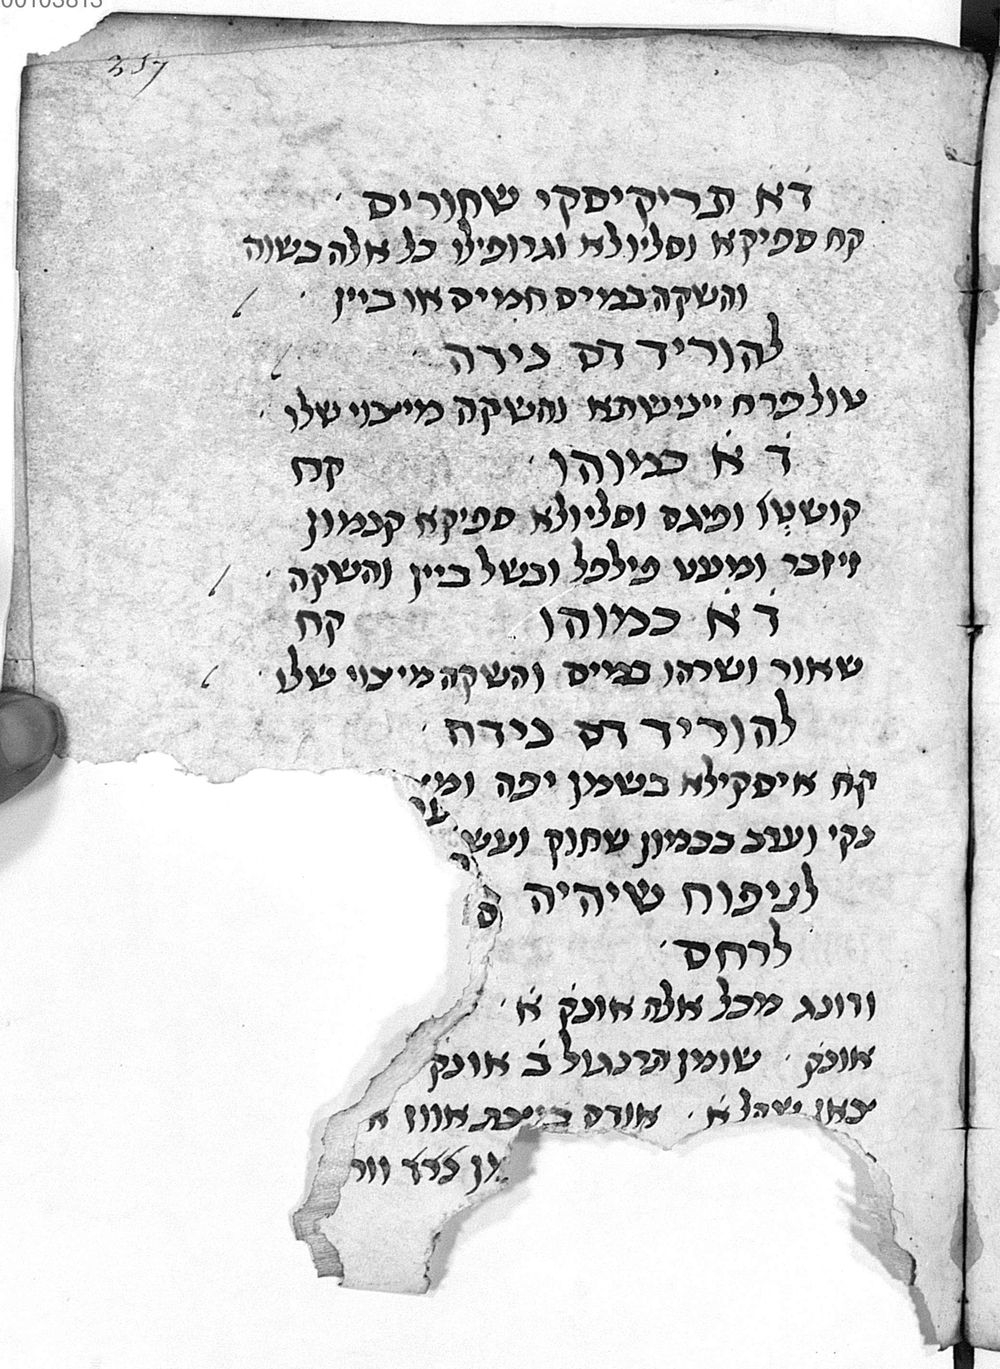 00103813
357
ד̇א̇ תריקיסקי שחורים
קח ספיקא וסליולא וגרופילו כל אלה בשוה
והשקה במים חמים או ביין
להוריד דם נידה
טול פרח יינישתא והשקה מייצוי שלו
ד̇ א̇ כמוהו קח
קושטו ופיגם וסליולא ספיקא קנמון
זיזבר ומעט פילפל ובשל ביין והשקה
ד̇ א̇ כמוהו קח
שאור ושרהו במים והשקה מיצוי שלו
להוריד דם נידה
קח איסקילא בשמן יפה
נקי וערב בכמון שחוק ועש
לניפוח שיהיה
לרחם
ודונג מכל אלה אונק̇ א̇
אונק̇ שומן תרנגול ב̇ אונק̇
אווז